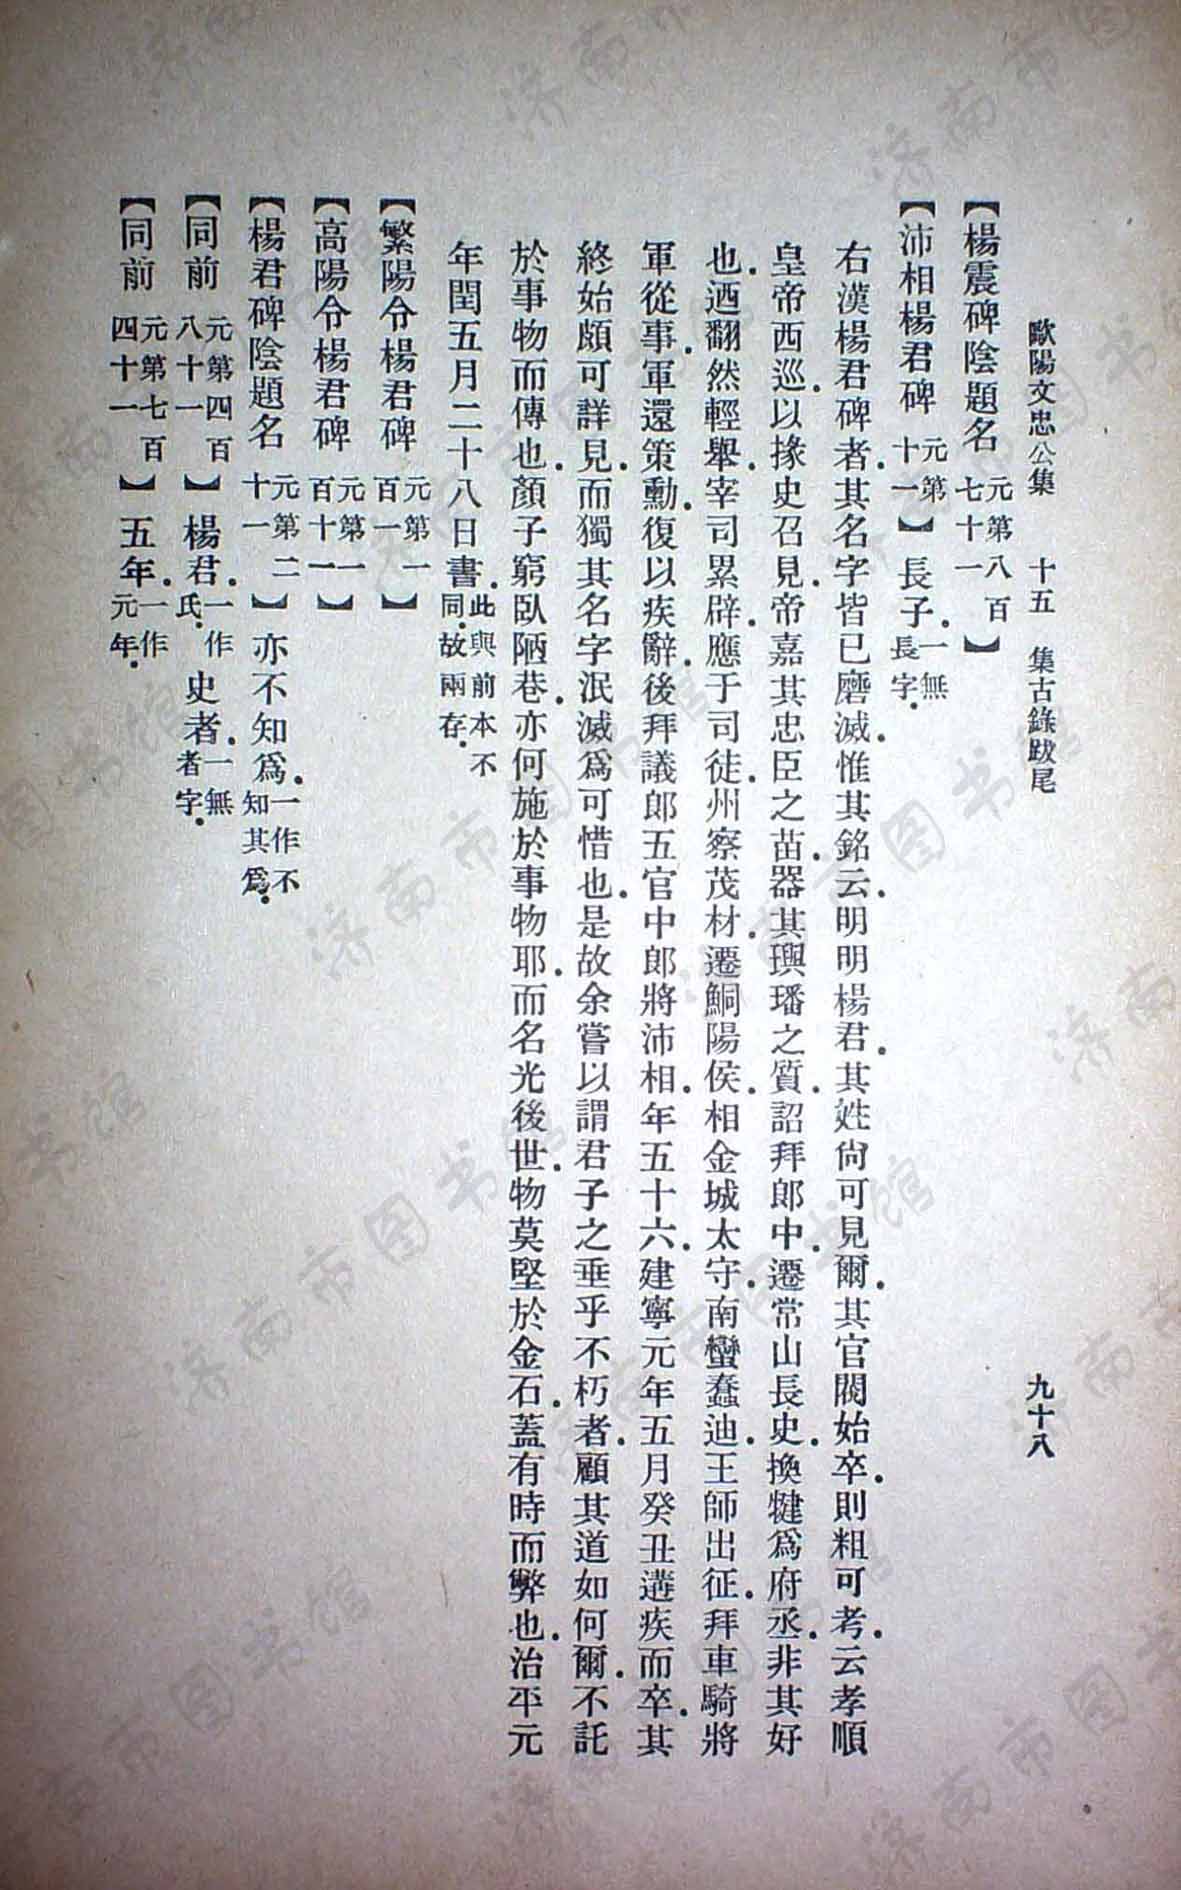 歐陽文忠公集 十五 集古錄跋尾 九十八
【楊震碑陰題名 元第八百七十一】
【沛相楊君碑 元第十一】長子.一無長字.
右漢楊君碑者.其名字皆已磨滅.惟其銘云.明明楊君.其姓尙可見爾.其官閥始卒.則粗可考.云孝順
皇帝西巡.以掾史召見.帝嘉其忠臣之苗.器其璵璠之質.詔拜郎中.遷常山長史.換犍爲府丞.非其好
也.迺翻然輕舉.宰司累辟.應于司徒.州察茂材.遷鮦陽侯相金城太守.南蠻蠢迪.王師出征.拜車騎將
軍從事.軍還策勳.復以疾辭.後拜議郎五官中郎將沛相.年五十六.建寧元年五月癸丑遘疾而卒.其
終始頗可詳見.而獨其名字泯滅爲可惜也.是故余嘗以謂君子之垂乎不朽者.顧其道如何爾.不託
於事物而傳也.顏子窮臥陋巷.亦何施於事物耶.而名光後世.物莫堅於金石.蓋有時而弊也.治平元
年閏五月二十八日書.此與前本不同.故兩存.
【繁陽令楊君碑 元第一百一】
【高陽令楊君碑 元第一百十一】
【楊君碑陰題名 元第二十一】亦不知爲.一作不知其爲.
【同前 元第四百八十一】楊君.一作氏.史者.一無者字.
【同前 元第七百四十一】五年.一作元年.
濟南市图书馆